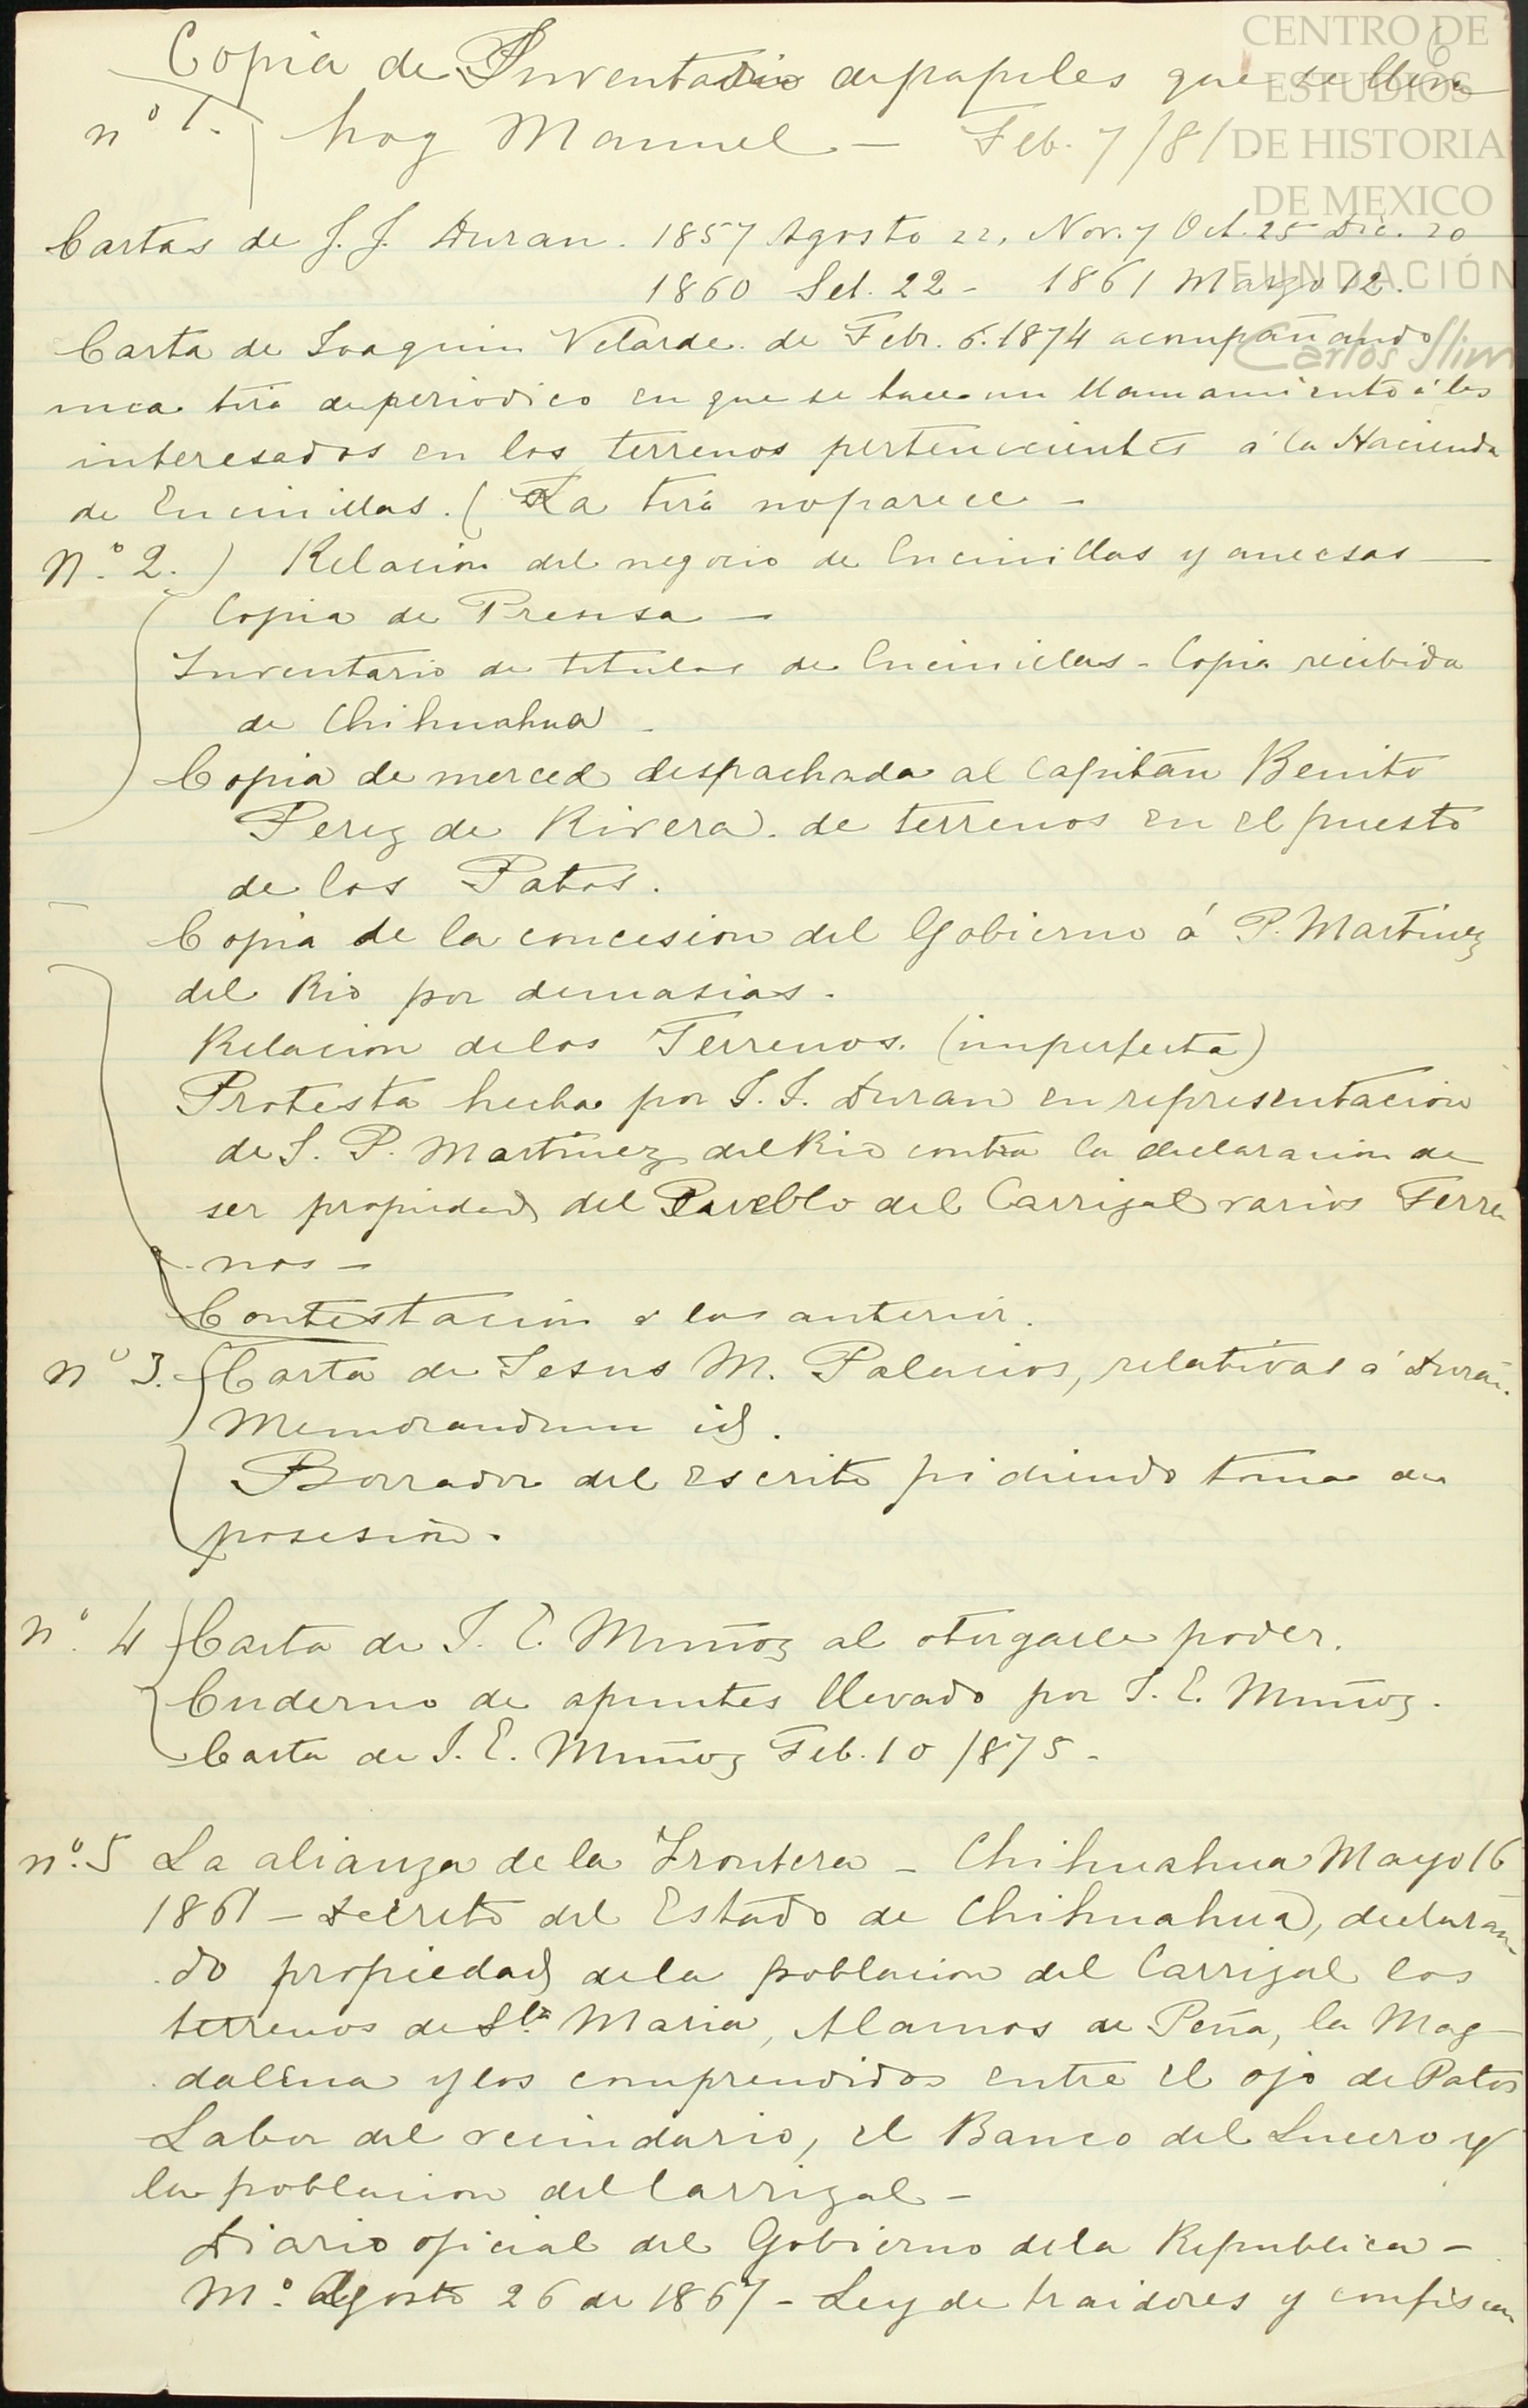 CENTRO DE
ESTUDIOS
DE HISTORIA
DE MEXICO
FUNDACIÓN
Carlos Slim
6
Copia de Inventario de papeles que se lleva
nº 1. hoy Manuel — Feb. 7/81.
Cartas de J. J. Duran. 1857 Agosto 22, Nov. 7 Oct. 25 Dic. 20
1860 Set. 22 - 1861 Marzo 12.
Carta de Joaquin Velarde de Febr. 6. 1874 acompañando
una tira de periodico en que se hace un llamamiento á los
interesados en los terrenos pertenecientes á la Hacienda
de Encinillas. (La tira no parece —
Nº 2.) Relacion del negocio de Encinillas y anecsas —
Copia de Prensa —
Inventario de titulos de Encinillas - Copia recibida
de Chihuahua -
Copia de merced despachada al Capitan Benito
Perez de Rivera. de terrenos en el puesto
de los Patos.
Copia de la concesion del Gobierno á P. Martinez
del Rio por demasias.
Relacion de los Terrenos. (imperfecta)
Protesta hecha por J. J. Duran en representacion
de J. P. Martinez del Rio contra la declaracion de
ser propiedad del Pueblo del Carrizal varios Terre
nos —
Contestacion a las anterior.
nº 3. Carta de Jesus M. Palacios, relativas á Duran.
Memorandum id.
Borrador del escrito pidiendo toma de
posesion.
nº 4 Carta de J. E. Muñoz al otorgarle poder.
Cuderno de apuntes llevado por J. E. Muñoz.
Carta de J. E. Muñoz Feb. 10 1875 -
nº. 5 La alianza de la Frontera - Chihuahua Mayo 16
1861 — Decreto del Estado de Chihuahua, declaran-
do propiedad de la poblacion del Carrizal los
terrenos de Sta Maria, Alamos de Peña, la Mag-
dalena y los comprendidos entre el ojo de Patos
Labor del vecindario, el Banco del Lucero y
la poblacion del Carrizal -
Diario oficial del Gobierno de la Republica -
Mº. Agosto 26 de 1867 - Ley de traidores y confiscan